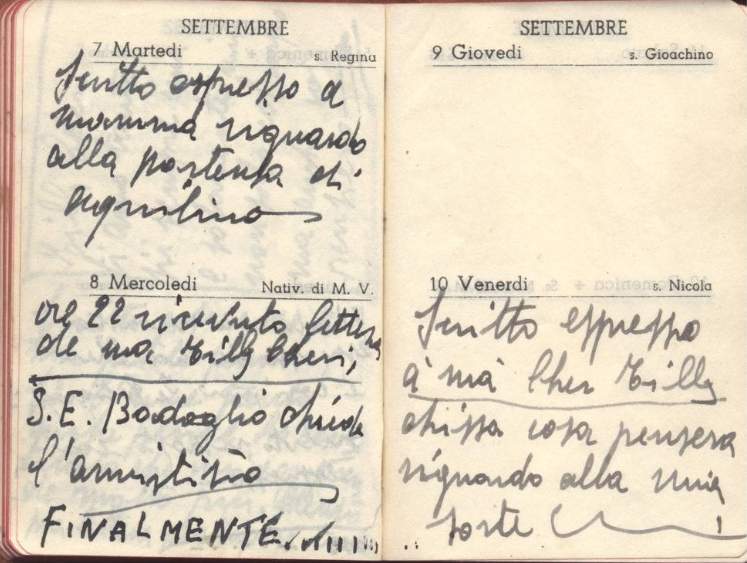 SETTEMBRE
7 Martedi s. Regina
Scritto espresso a
mamma riguardo
alla partenza di
Aquilino
8 Mercoledi Nativ. di M. V.
ore 22 ricevuto lettera
de ma Tilly Cheri,
S.E. Badoglio chiede
l'armistizio
FINALMENTE
SETTEMBRE
9 Giovedi s. Gioachino
10 Venerdi s. Nicola
Scritto espresso
a ma Cher Tilly
chissa cosa pensera
riguardo alla mia
sorte